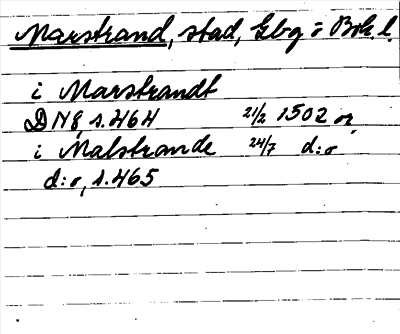 Marstrand, stad, Gbg o Boh. l.
i Marstrandt
DN 8, s. 464 21/2 1502 or.
i Malstrande 24/7 d:o
d:o, s. 465